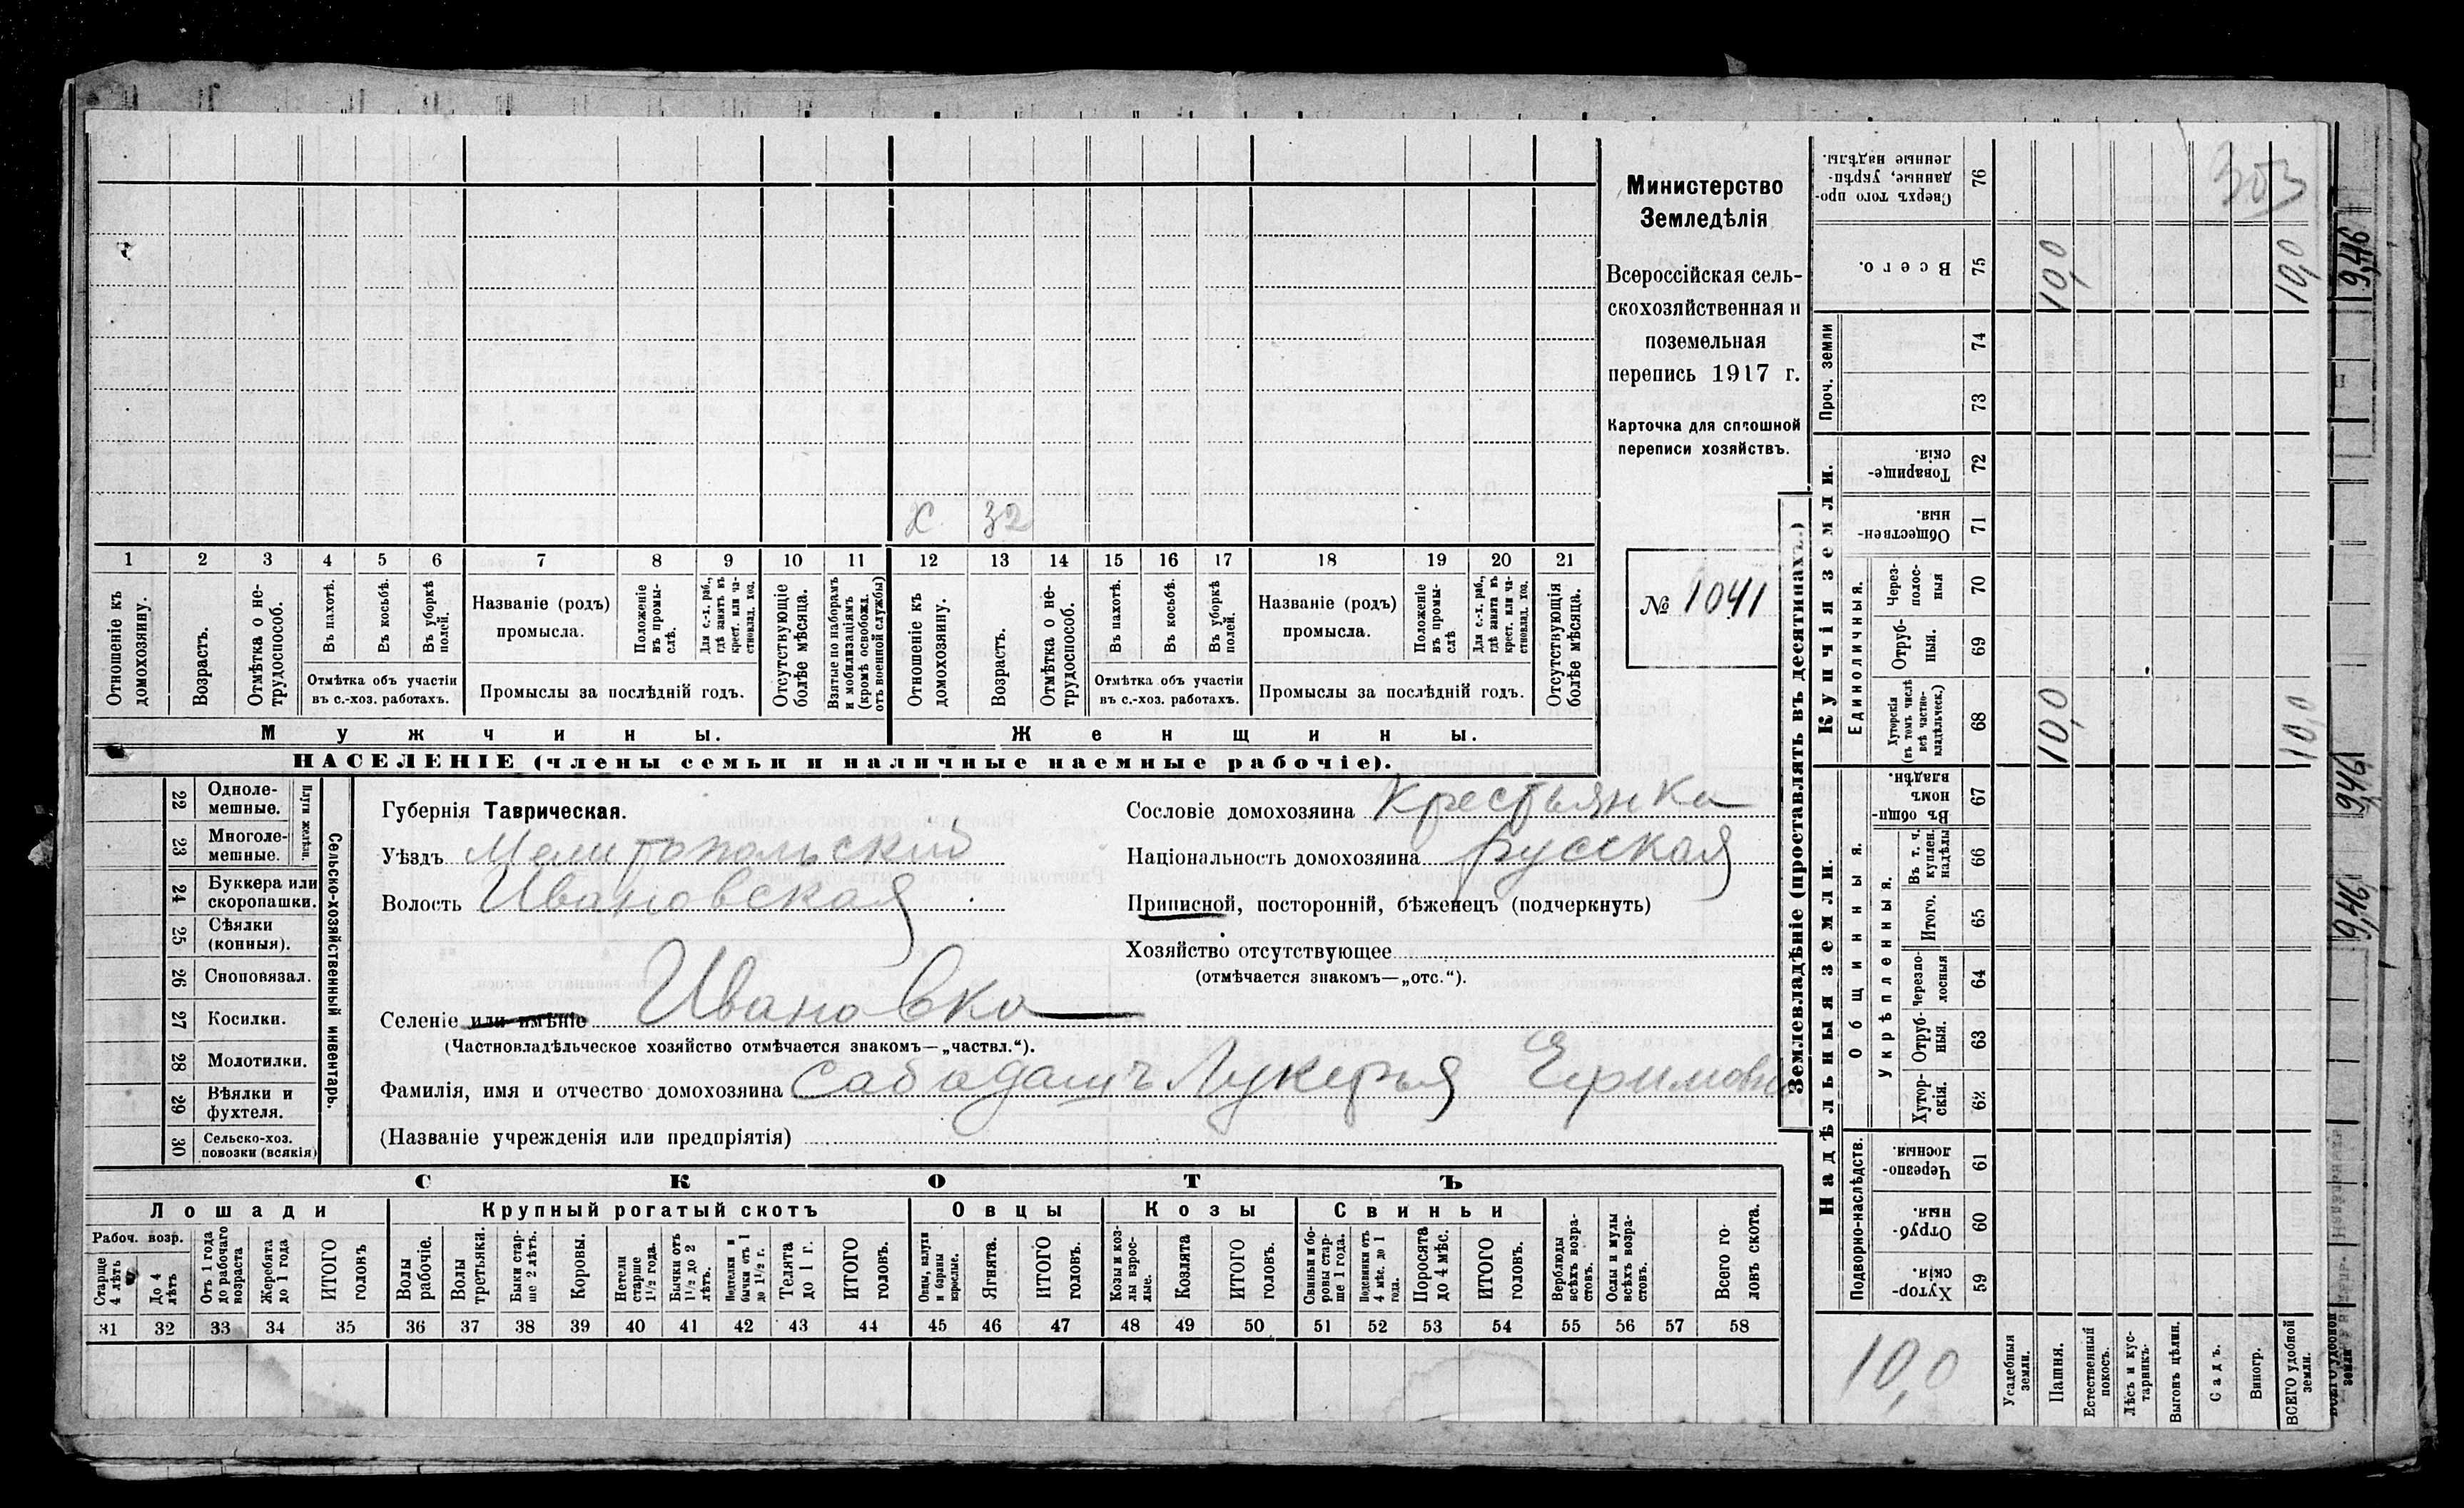 Министерство
Земледѣлія
Всероссійская сель-
скохозяйственная и
поземельная
перепись 1917 г.
Карточка для сплошной
переписи хозяйствъ.
№ 1041
Х 32
1 2 3 4 5 6 7 8 9 10 11 12 13 14 15 16 17 18 19 20 21
Отношеніе къ домохозяину.
Возрастъ.
Отмѣтка о не-трудоспособ.
Въ пахотѣ.
Въ косьбѣ.
Въ уборкѣ полей.
Названіе (родъ) промысла.
Положеніе въ промы-слѣ.
Для с.-х. раб., гдѣ занятъ въ крест. или ча-стновлад. хоз.
Отсутствующіе болѣе мѣсяца.
Взятые по наборамъ и мобилизаціямъ (кромѣ освобожд. отъ военной службы)
Отношеніе къ домохозяину.
Возрастъ.
Отмѣтка о не-трудоспособ.
Въ пахотѣ.
Въ косьбѣ.
Въ уборкѣ полей.
Названіе (родъ) промысла.
Положеніе въ промы-слѣ
Для с.-х. раб., гдѣ занята въ крест. или ча-стновлад. хоз.
Отсутствующія болѣе мѣсяца.
Отмѣтка объ участіи въ с.-хоз. работахъ.
Промыслы за послѣдній годъ.
Отмѣтка объ участіи въ с.-хоз. работахъ.
Промыслы за послѣдній годъ.
Мужчины. Женщины.
НАСЕЛЕНІЕ (члены семьи и наличные наемные рабочіе).
22 Одноле-мешные.
23 Многоле-мешные.
Плуги желѣзн.
24 Буккера или скоропашки.
25 Сѣялки (конныя).
26 Сноповязал.
27 Косилки.
28 Молотилки.
29 Вѣялки и фухтеля.
30 Сельско-хоз. повозки (всякія)
Сельско-хозяйственный инвентарь.
Губернія Таврическая.
Уѣздъ Мелитопольский
Волость Ивановская
Селеніе или имѣніе Ивановка
(Частновладѣльческое хозяйство отмѣчается знакомъ—„частвл.“).
Фамилія, имя и отчество домохозяина Сабадашъ Лукерья Ефимовна
(Названіе учрежденія или предпріятія)
Сословіе домохозяина Крестьянка
Національность домохозяина русская
Приписной, посторонній, бѣженецъ (подчеркнуть)
Хозяйство отсутствующее
(отмѣчается знакомъ—„отс.“).
СКОТЪ
Лошади Крупный рогатый скотъ Овцы Козы Свиньи
Рабоч. возр.
Старше 4 лѣтъ
До 4 лѣтъ
Отъ 1 года до рабочаго возраста
Жеребята до 1 года
ИТОГО головъ
Волы рабочіе.
Волы третьяки.
Быки стар-ше 2 лѣтъ.
Коровы.
Нетели старше 1½ года.
Бычки отъ 1½ до 2 лѣтъ.
Подтелки и бычки отъ 1 до 1½ г.
Телята до 1 г.
ИТОГО головъ.
Овцы, валухи и бараны взрослые.
Ягнята.
ИТОГО головъ.
Козы и коз-лы взрос-лые.
Козлята
ИТОГО головъ.
Свиньи и бо-ровы стар-ше 1 года.
Подсвинки отъ 4 мѣс. до 1 года.
Поросята до 4 мѣс.
ИТОГО головъ.
Верблюды всѣхъ возра-стовъ.
Ослы и мулы всѣхъ возра-стовъ.
Всего го-ловъ скота.
31 32 33 34 35 36 37 38 39 40 41 42 43 44 45 46 47 48 49 50 51 52 53 54 55 56 57 58
Землевладѣніе (проставлять въ десятинахъ.)
Надѣльныя земли. Купчія земли. Проч. земли
Подворно-наслѣдств.
Общинныя.
Укрѣпленныя.
Единоличныя.
Сверхъ того про-данные, укрѣп-ленные надѣлы. 76
Всего. 75
74
73
Товарище-скія. 72
Общественныя. 71
Черезполосныя 70
Отруб-ныя. 69
Хуторскія (въ томъ числѣ всѣ частно-владѣльческ.) 68
Въ общи-номъ владѣн. 67
Въ т. ч. куплен. надѣлы 66
Итого. 65
Черезпо-лосныя 64
Отруб-ныя. 63
Хутор-скія. 62
Черезпо-лосныя. 61
Отруб-ныя. 60
Хутор-скія. 59
303
10,0 10,0
10,0 10,0
10,0
Усадебныя земли.
Пашня.
Естественный покосъ.
Лѣсъ и кус-тарникъ.
Выгонъ цѣлин.
Садъ.
Виногр.
ВСЕГО удобной земли.
9,46
9,46
9,46